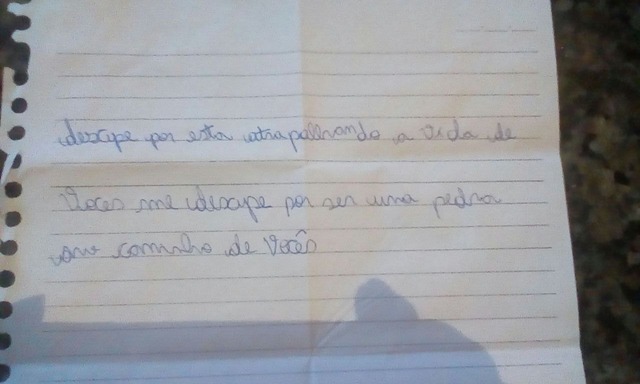 descupe por esta atrapalhando a vida de
voces me descupe por ser uma pedra
no caminho de vocês